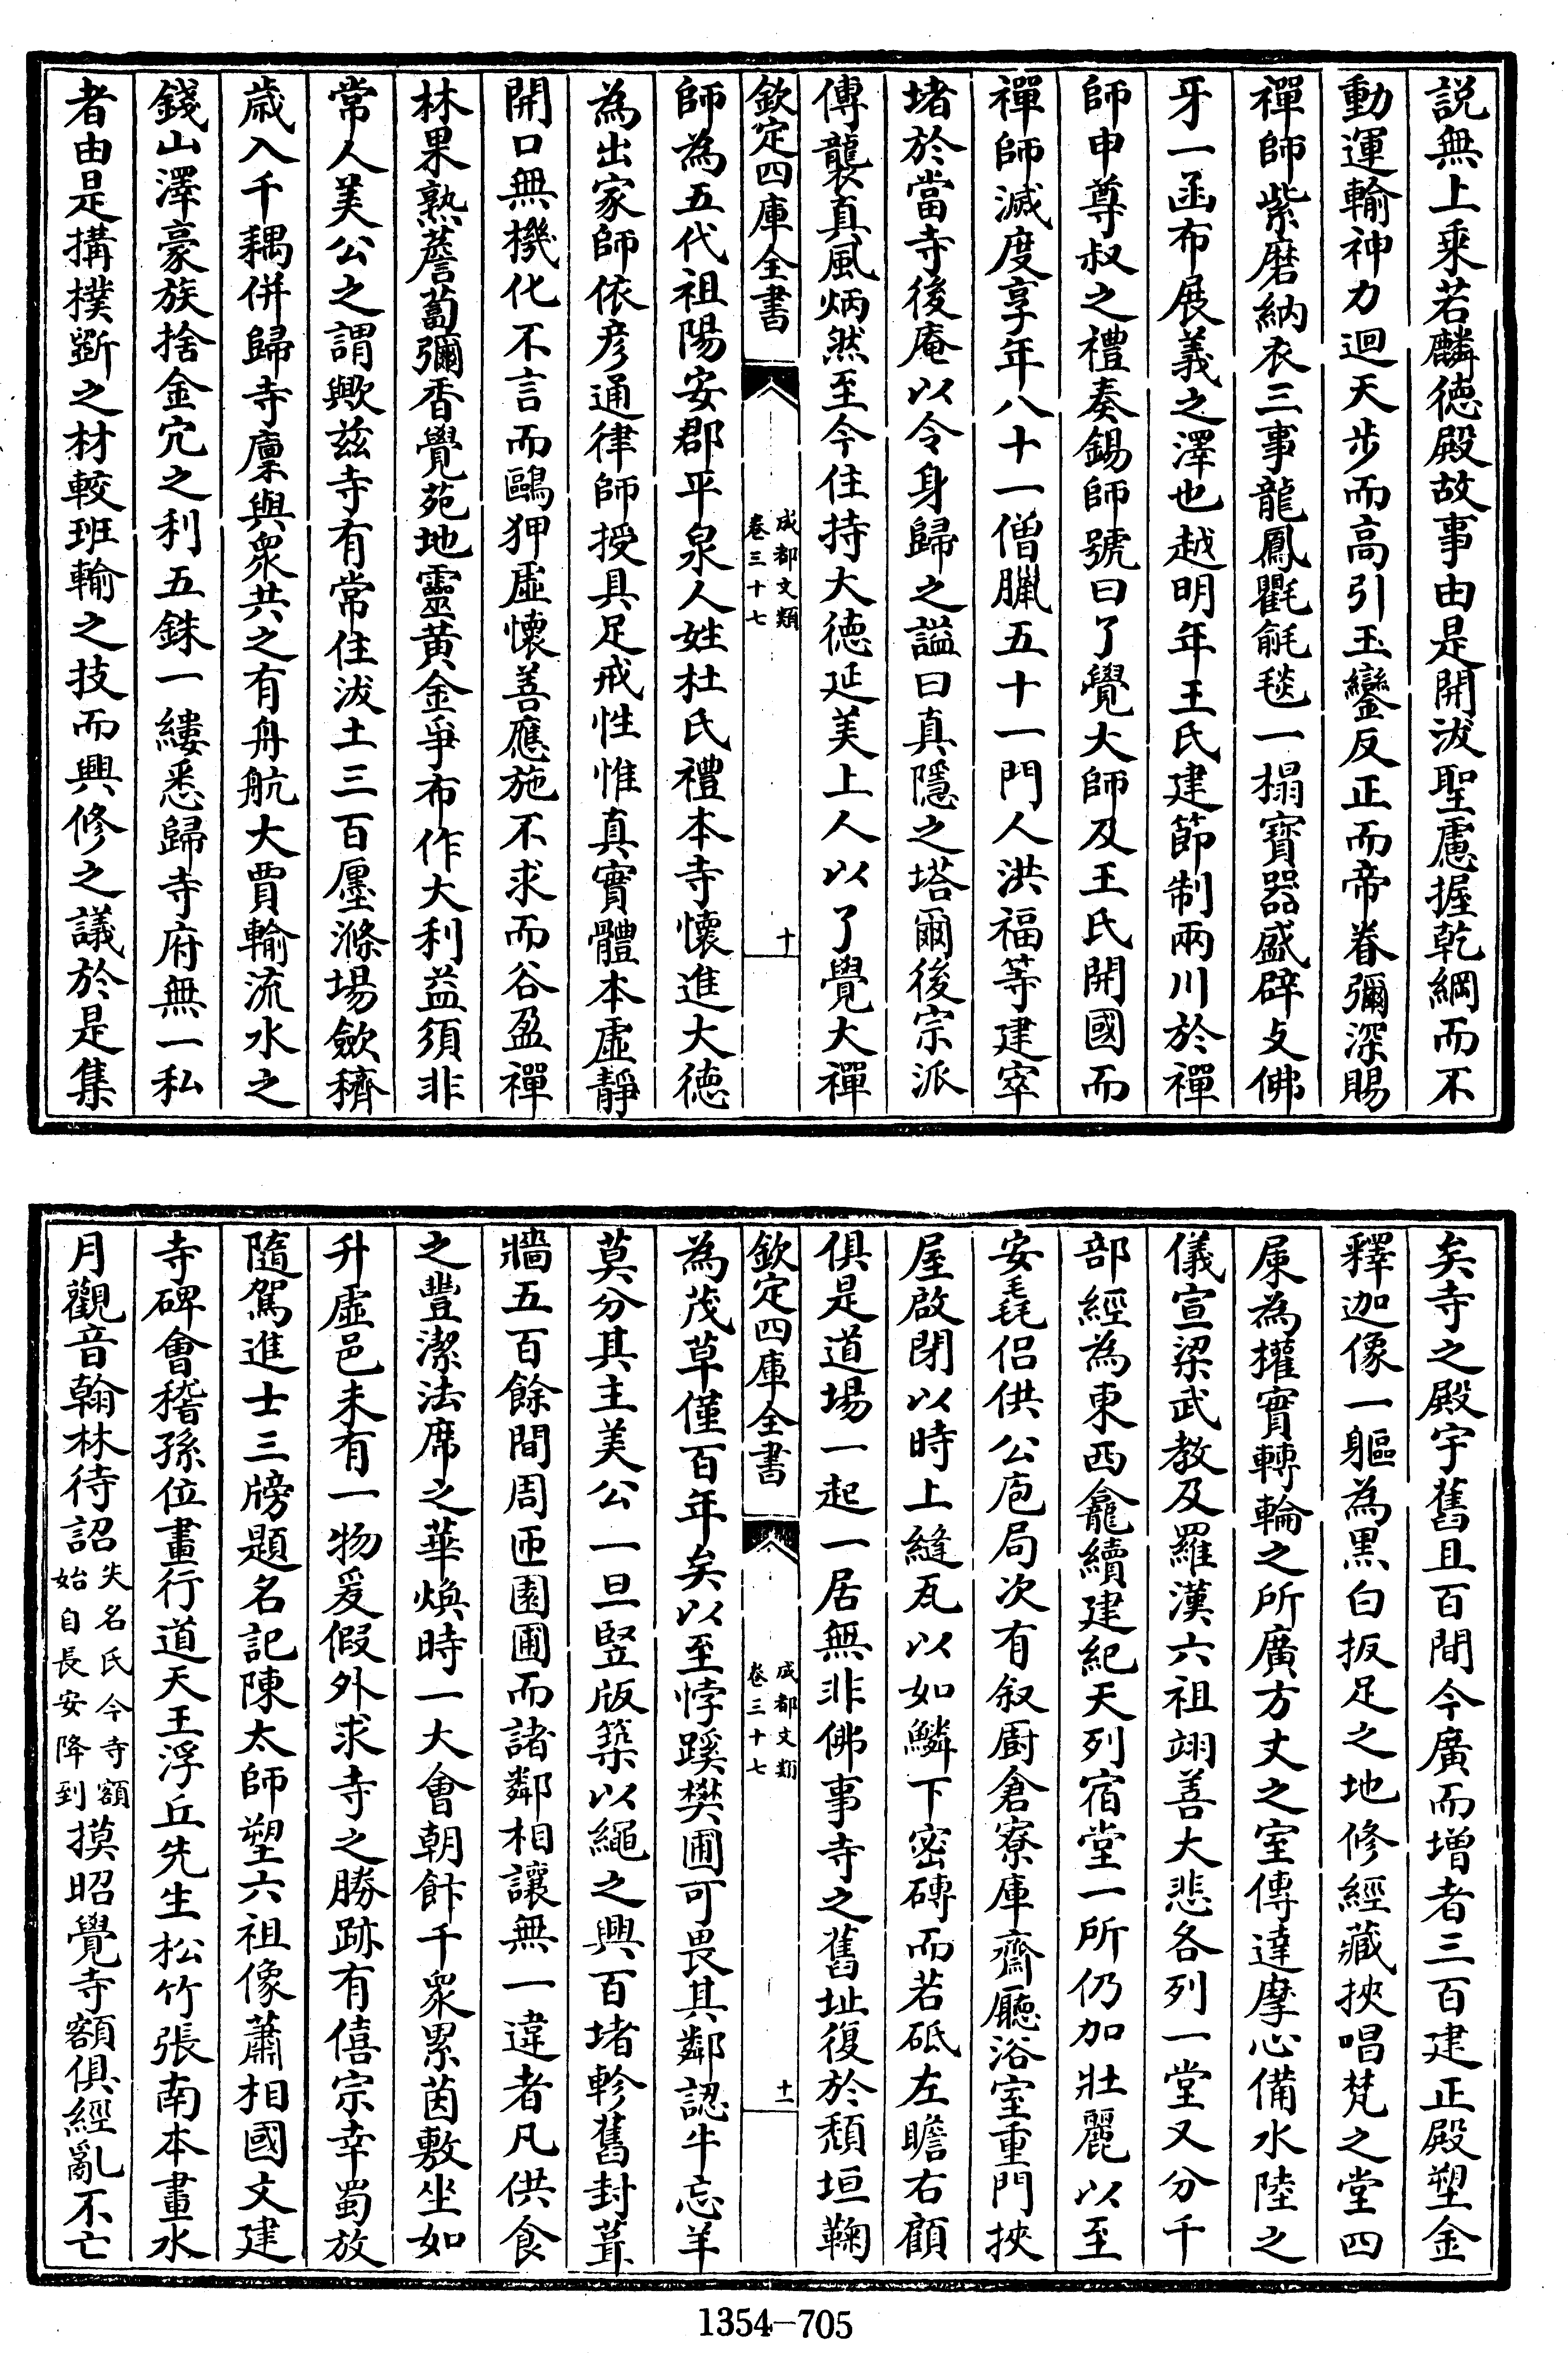 說無上乘若麟德殿故事由是開泼聖慮握乾綱而不
動運輸神力迴天步而高引玉鑾反正而帝眷彌深賜
禪師紫磨納衣三事龍鳳氍毹毯一榻寶器盛辟攴佛
牙一函布展義之澤也越明年王氏建節制兩川於禪
師申尊叔之禮奏錫師號曰了覺大師及王氏開國而
禪師滅度享年八十一僧臘五十一門人洪福等建窣
堵於當寺後庵以令身歸之謚曰真隱之塔爾後宗派
傳襲真風炳然至今住持大德延美上人以了覺大禪
欽定四庫全書
成都文類
卷三十七
十
師為五代祖陽安郡平泉人姓杜氏禮本寺懷進大德
為出家師依彥通律師授具足戒性惟真實體本虛靜
開口無機化不言而鷗狎虛懷善應施不求而谷盈禪
林果熟薝蔔彌香覺苑地靈黃金爭布作大利益須非
常人美公之謂歟茲寺有常住泼土三百廛滌場斂穧
歲入千耦併歸寺廩與衆共之有舟航大賈輸流水之
錢山澤豪族捨金穴之利五銖一縷悉歸寺府無一私
者由是搆樸斲之材較班輸之技而興修之議於是集
矣寺之殿宇舊且百間今廣而增者三百建正殿塑金
釋迦像一軀為黒白扳足之地修經藏挾唱梵之堂四
屎為權實轉輪之所廣方丈之室傳達摩心備水陸之
儀宣梁武教及羅漢六祖翊善大悲各列一堂又分千
部經為東西龕續建紀天列宿堂一所仍加壯麗以至
安毳侣供公庖局次有叙厨倉寮庫齋廳浴室重門挾
屋啟閉以時上縫瓦以如鱗下密磚而若砥左瞻右顧
俱是道場一起一居無非佛事寺之舊址復於頽垣鞠
欽定四庫全書
成都文類
卷三十七
十一
為茂草僅百年矣以至悖蹊樊圃可畏其鄰認牛忘羊
莫分其主美公一旦竪版築以繩之興百堵軫舊封葺
牆五百餘間周匝園圃而諸鄰相讓無一違者凡供食
之豐潔法席之華煥時一大會朝飰千衆累茵敷坐如
升虛邑未有一物爰假外求寺之勝跡有僖宗幸蜀放
隨駕進士三牓題名記陳太師塑六祖像蕭相國文建
寺碑會稽孫位畫行道天王浮丘先生松竹張南本畫水
月觀音翰林待詔失名氏今寺額始自長安降到摸昭覺寺額俱經亂不亡
1354-705